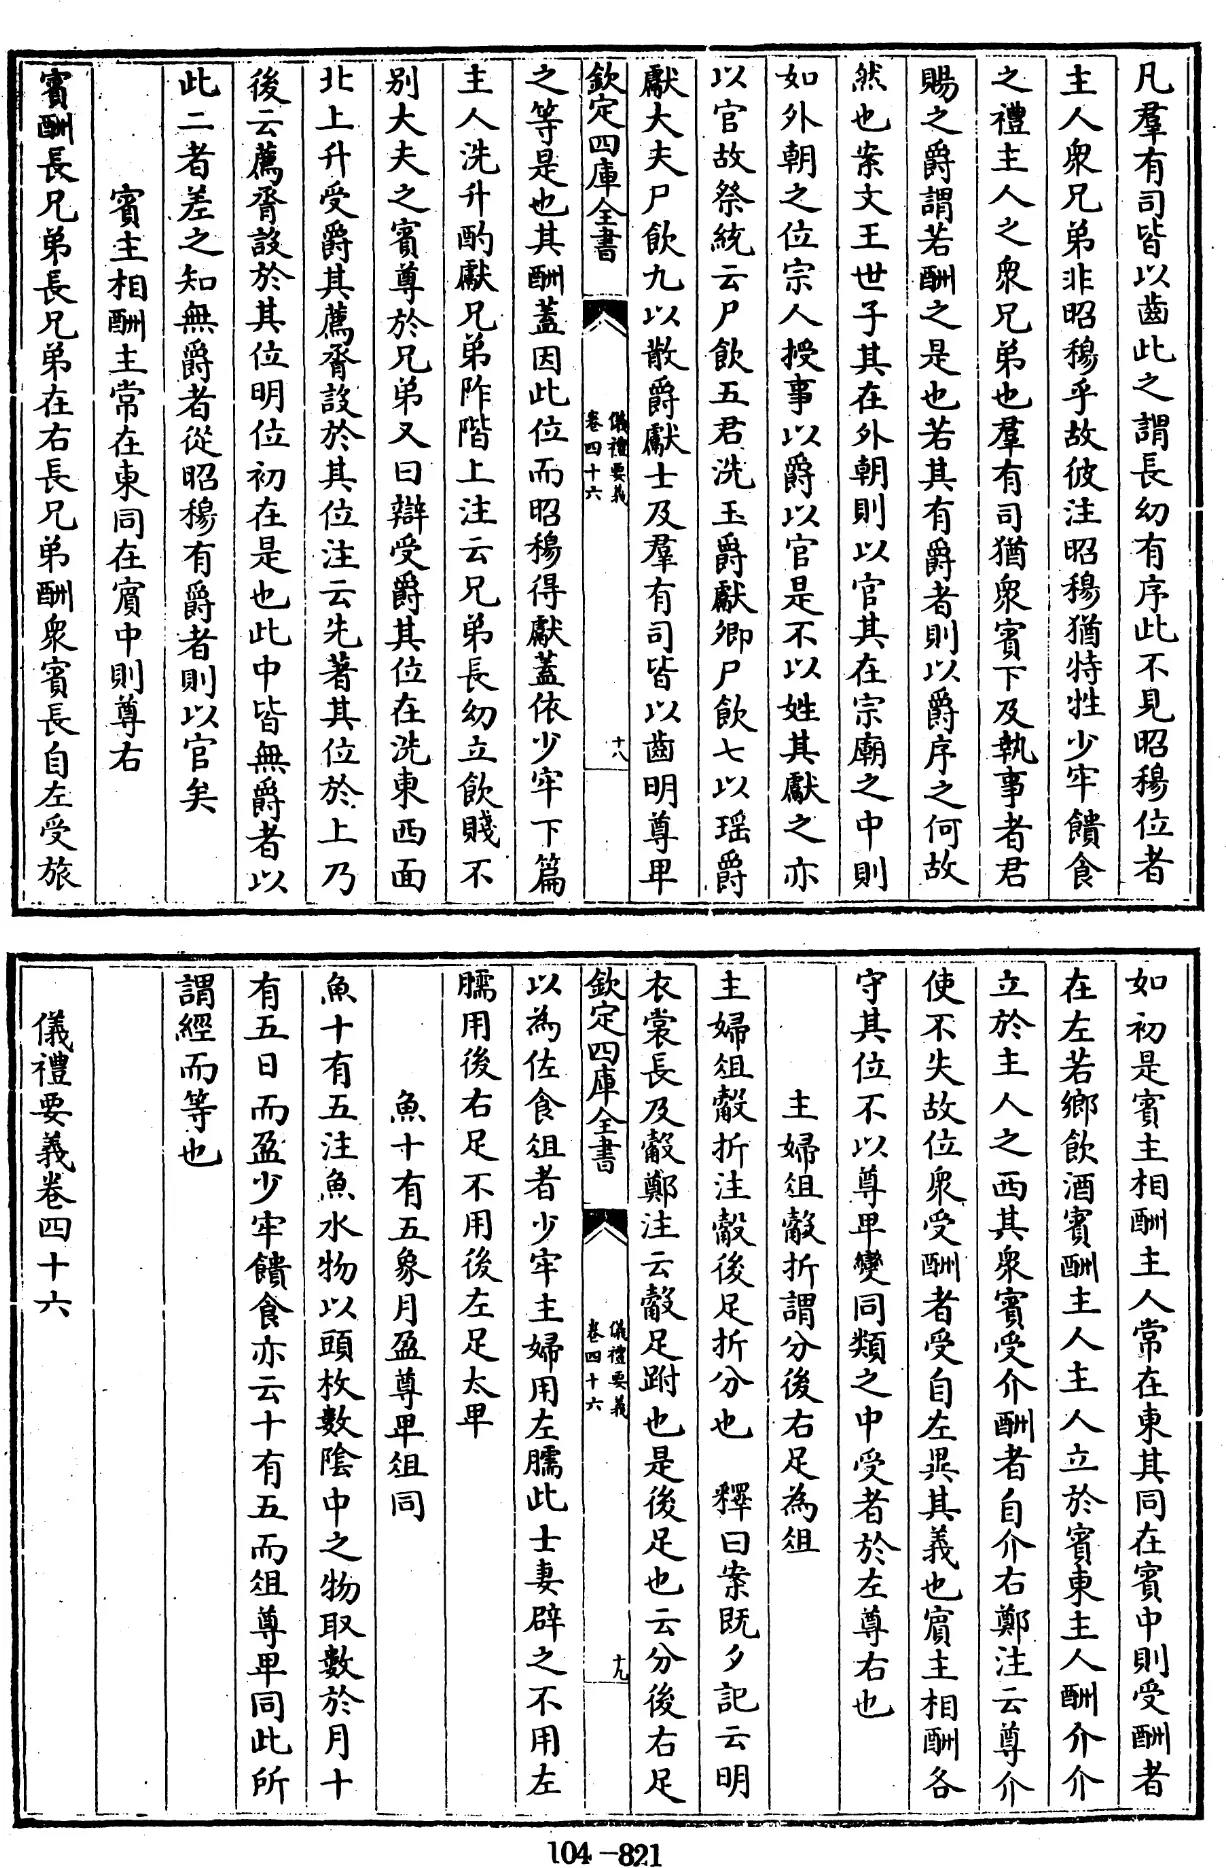 凡羣有司皆以齒此之謂長幼有序此不見昭穆位者
主人衆兄弟非昭穆乎故彼注昭穆猶特牲少牢饋食
之禮主人之衆兄弟也羣有司猶衆賓下及執事者君
賜之爵謂若酬之是也若其有爵者則以爵序之何故
然也案文王世子其在外朝則以官其在宗廟之中則
如外朝之位宗人授事以爵以官是不以姓其獻之亦
以官故祭統云尸飲五君洗玉爵獻卿尸飲七以瑶爵
獻大夫尸飲九以散爵獻士及羣有司皆以齒明尊卑
欽定四庫全書
儀禮要義
卷四十六
十八
之等是也其酬蓋因此位而昭穆得獻蓋依少牢下篇
主人洗升酌獻兄弟阼階上注云兄弟長幼立飲賤不
别大夫之賓尊於兄弟又曰辯受爵其位在洗東西面
北上升受爵其薦脀設於其位注云先著其位於上乃
後云薦脀設於其位明位初在是也此中皆無爵者以
此二者差之知無爵者從昭穆有爵者則以官矣
賓主相酬主常在東同在賔中則尊右
賓酬長兄弟長兄弟在右長兄弟酬衆賓長自左受旅
如初是賓主相酬主人常在東其同在賓中則受酬者
在左若鄉飲酒賓酬主人主人立於賓東主人酬介介
立於主人之西其衆賓受介酬者自介右鄭注云尊介
使不失故位衆受酬者受自左異其義也賔主相酬各
守其位不以尊卑變同類之中受者於左尊右也
主婦俎觳折謂分後右足為俎
主婦俎觳折注觳後足折分也　釋曰案既夕記云明
衣裳長及觳鄭注云觳足跗也是後足也云分後右足
欽定四庫全書
儀禮要義
卷四十六
十九
以為佐食俎者少牢主婦用左臑此士妻辟之不用左
臑用後右足不用後左足太卑
魚十有五象月盈尊卑俎同
魚十有五注魚水物以頭枚數陰中之物取數於月十
有五日而盈少牢饋食亦云十有五而俎尊卑同此所
謂經而等也
儀禮要義卷四十六
104-821